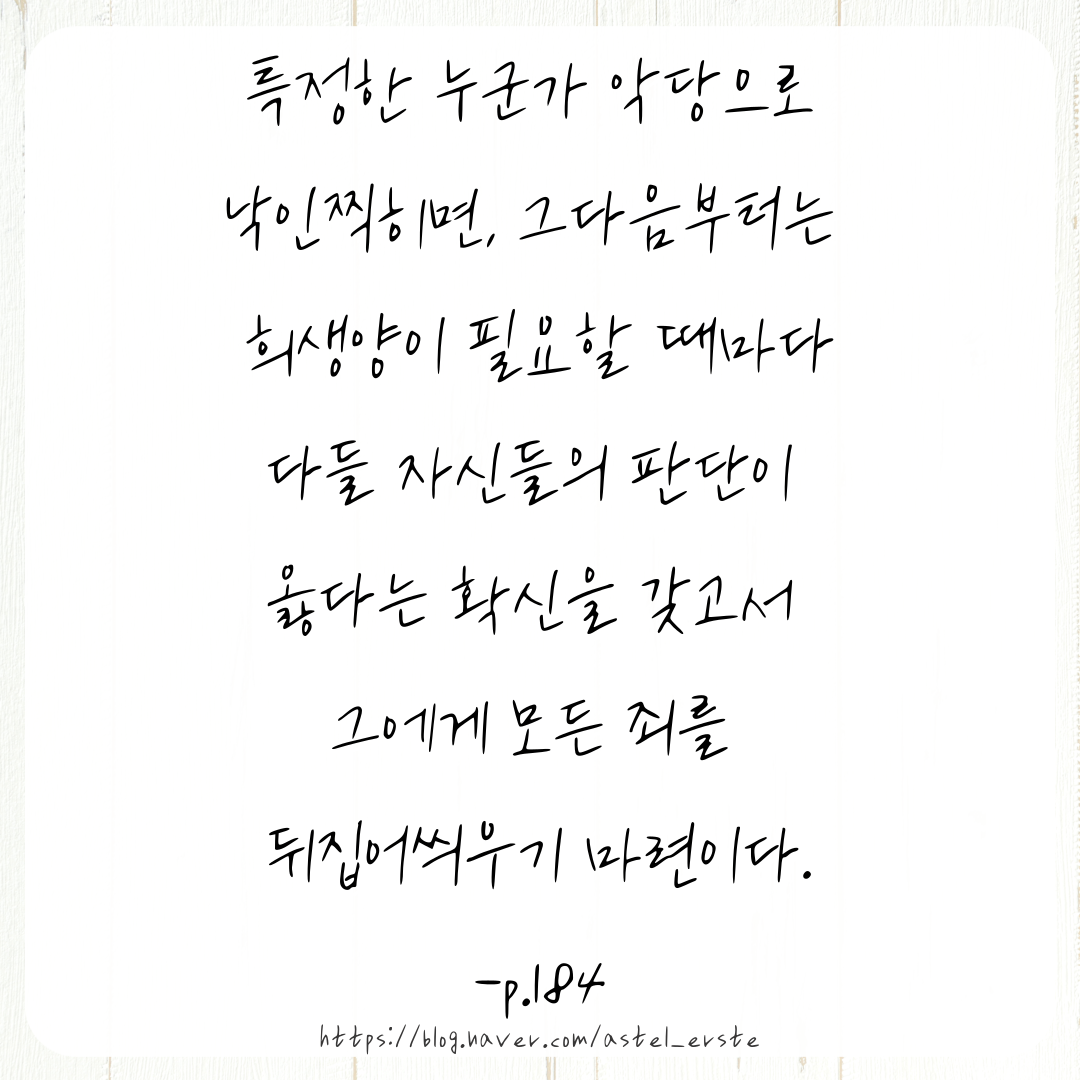 특정한 누군가 악당으로
낙인찍히면, 그다음부터는
희생양이 필요할 때마다
다들 자신들의 판단이
옳다는 확신을 갖고서
그에게 모든 죄를
뒤집어씌우기 마련이다.
-p.184
https://blog.naver.com/astel_erste